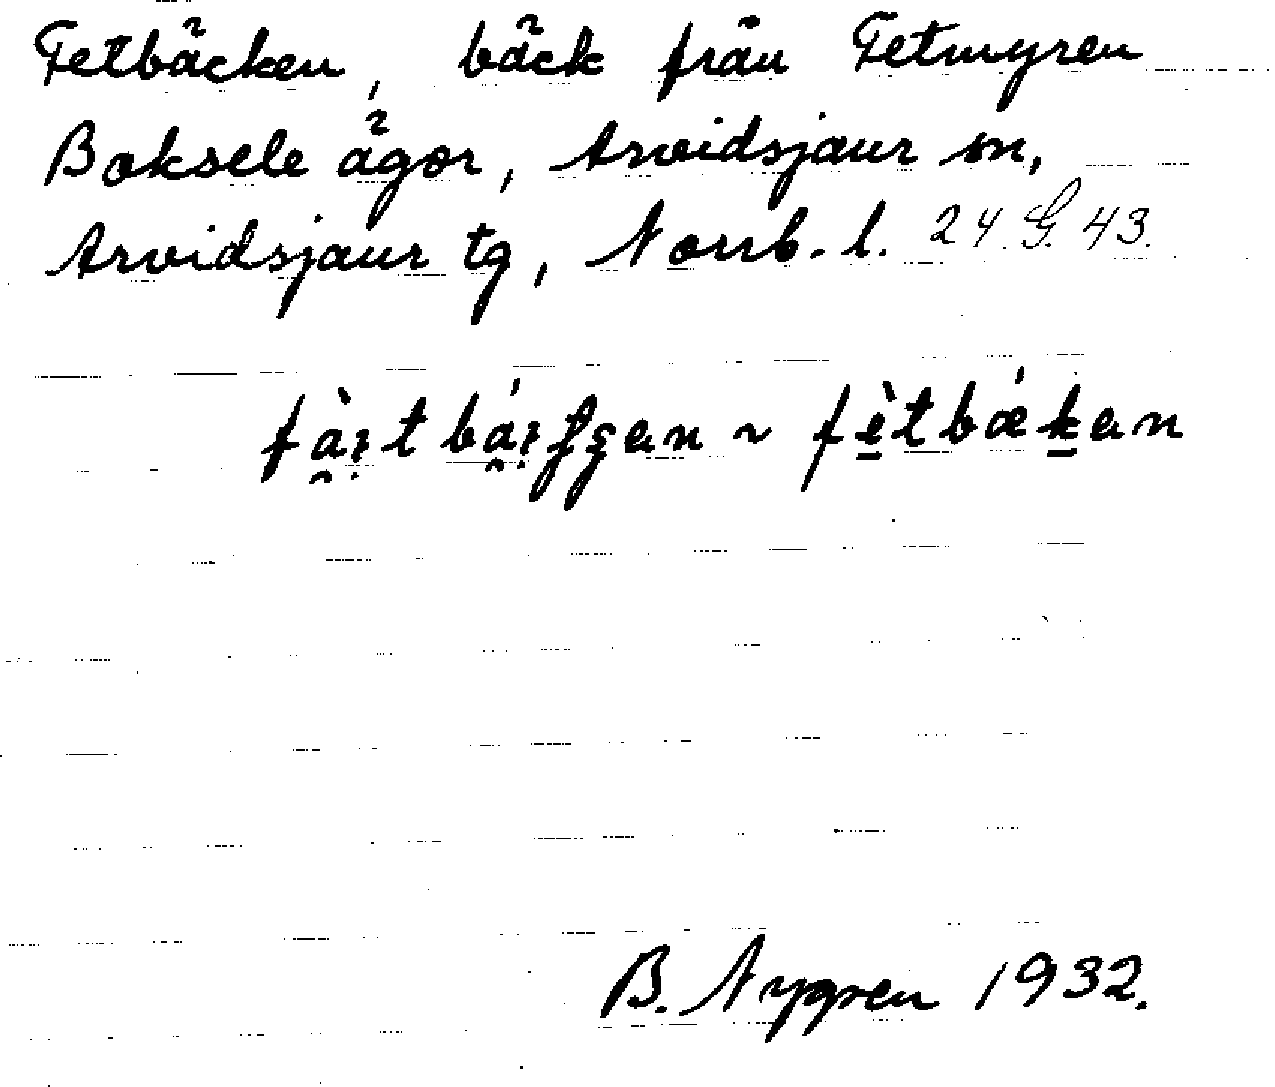 Fetbäcken, bäck från Fetmyren
Boksele ägor, Arvidsjaur sn,
Arvidsjaur tg, Norrb. l. 24.G.43.
fètbækan
B. Nygren 1932.